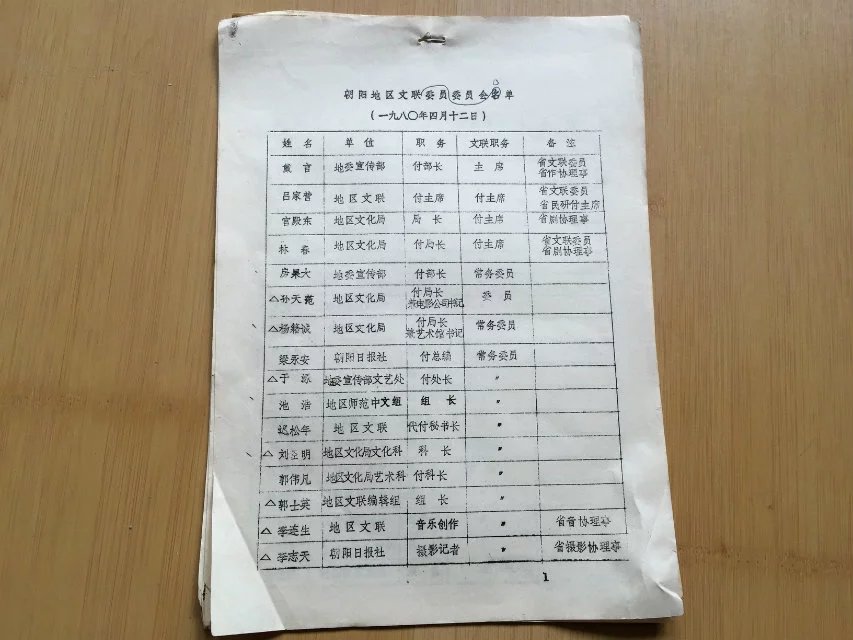 朝阳地区文联委员委员会名单
（一九八〇年四月十二日）
姓 名 单 位 职 务 文联职务 备 注
戴 言 地委宣传部 付部长 主 席 省文联委员 省作协理事
吕家营 地区文联 付主席 付主席 省文联委员 省民研付主席
官殿东 地区文化局 局 长 付主席 省剧协理事
林 春 地区文化局 付局长 付主席 省文联委员 省剧协理事
房果大 地委宣传部 付部长 常务委员
△孙天苑 地区文化局 付局长 兼电影公司书记 委 员
△杨毓诚 地区文化局 付局长 兼艺术馆书记 常务委员
梁永安 朝阳日报社 付总编 常务委员
△于 地委宣传部文艺处 付处长 〃
池 浩 地区师范中文组 组 长 〃
迟松年 地区文联 代付秘书长 〃
△刘 明 地区文化局文化科 科 长 〃
郭伟凡 地区文化局艺术科 付科长 〃
△郭士英 地区文联编辑组 组 长 〃
△李连生 地区文联 音乐创作 〃 省音协理事
△李志天 朝阳日报社 摄影记者 〃 省摄影协理事
1